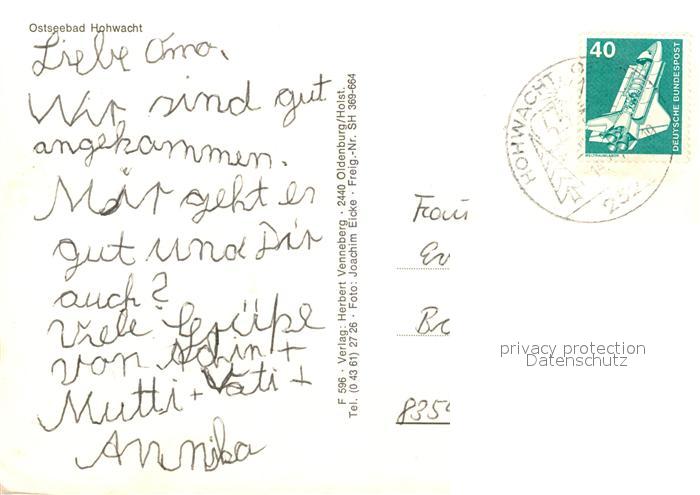 Ostseebad Hohwacht
Liebe Oma,
Wir sind gut
angekommen.
Mir geht es
gut und Dir
auch?
Viele Grüße
von
+
Mutti + Vati +
Annika
F 596 · Verlag: Herbert Venneberg · 2440 Oldenburg/Holst.
Tel. (0 43 61) 27 26 · Foto: Joachim Eicke · Freig.-Nr. SH 369-664
40
DEUTSCHE BUNDESPOST
WELTRAUMLABOR
HOHWACHT
Frau
privacy protection
Datenschutz